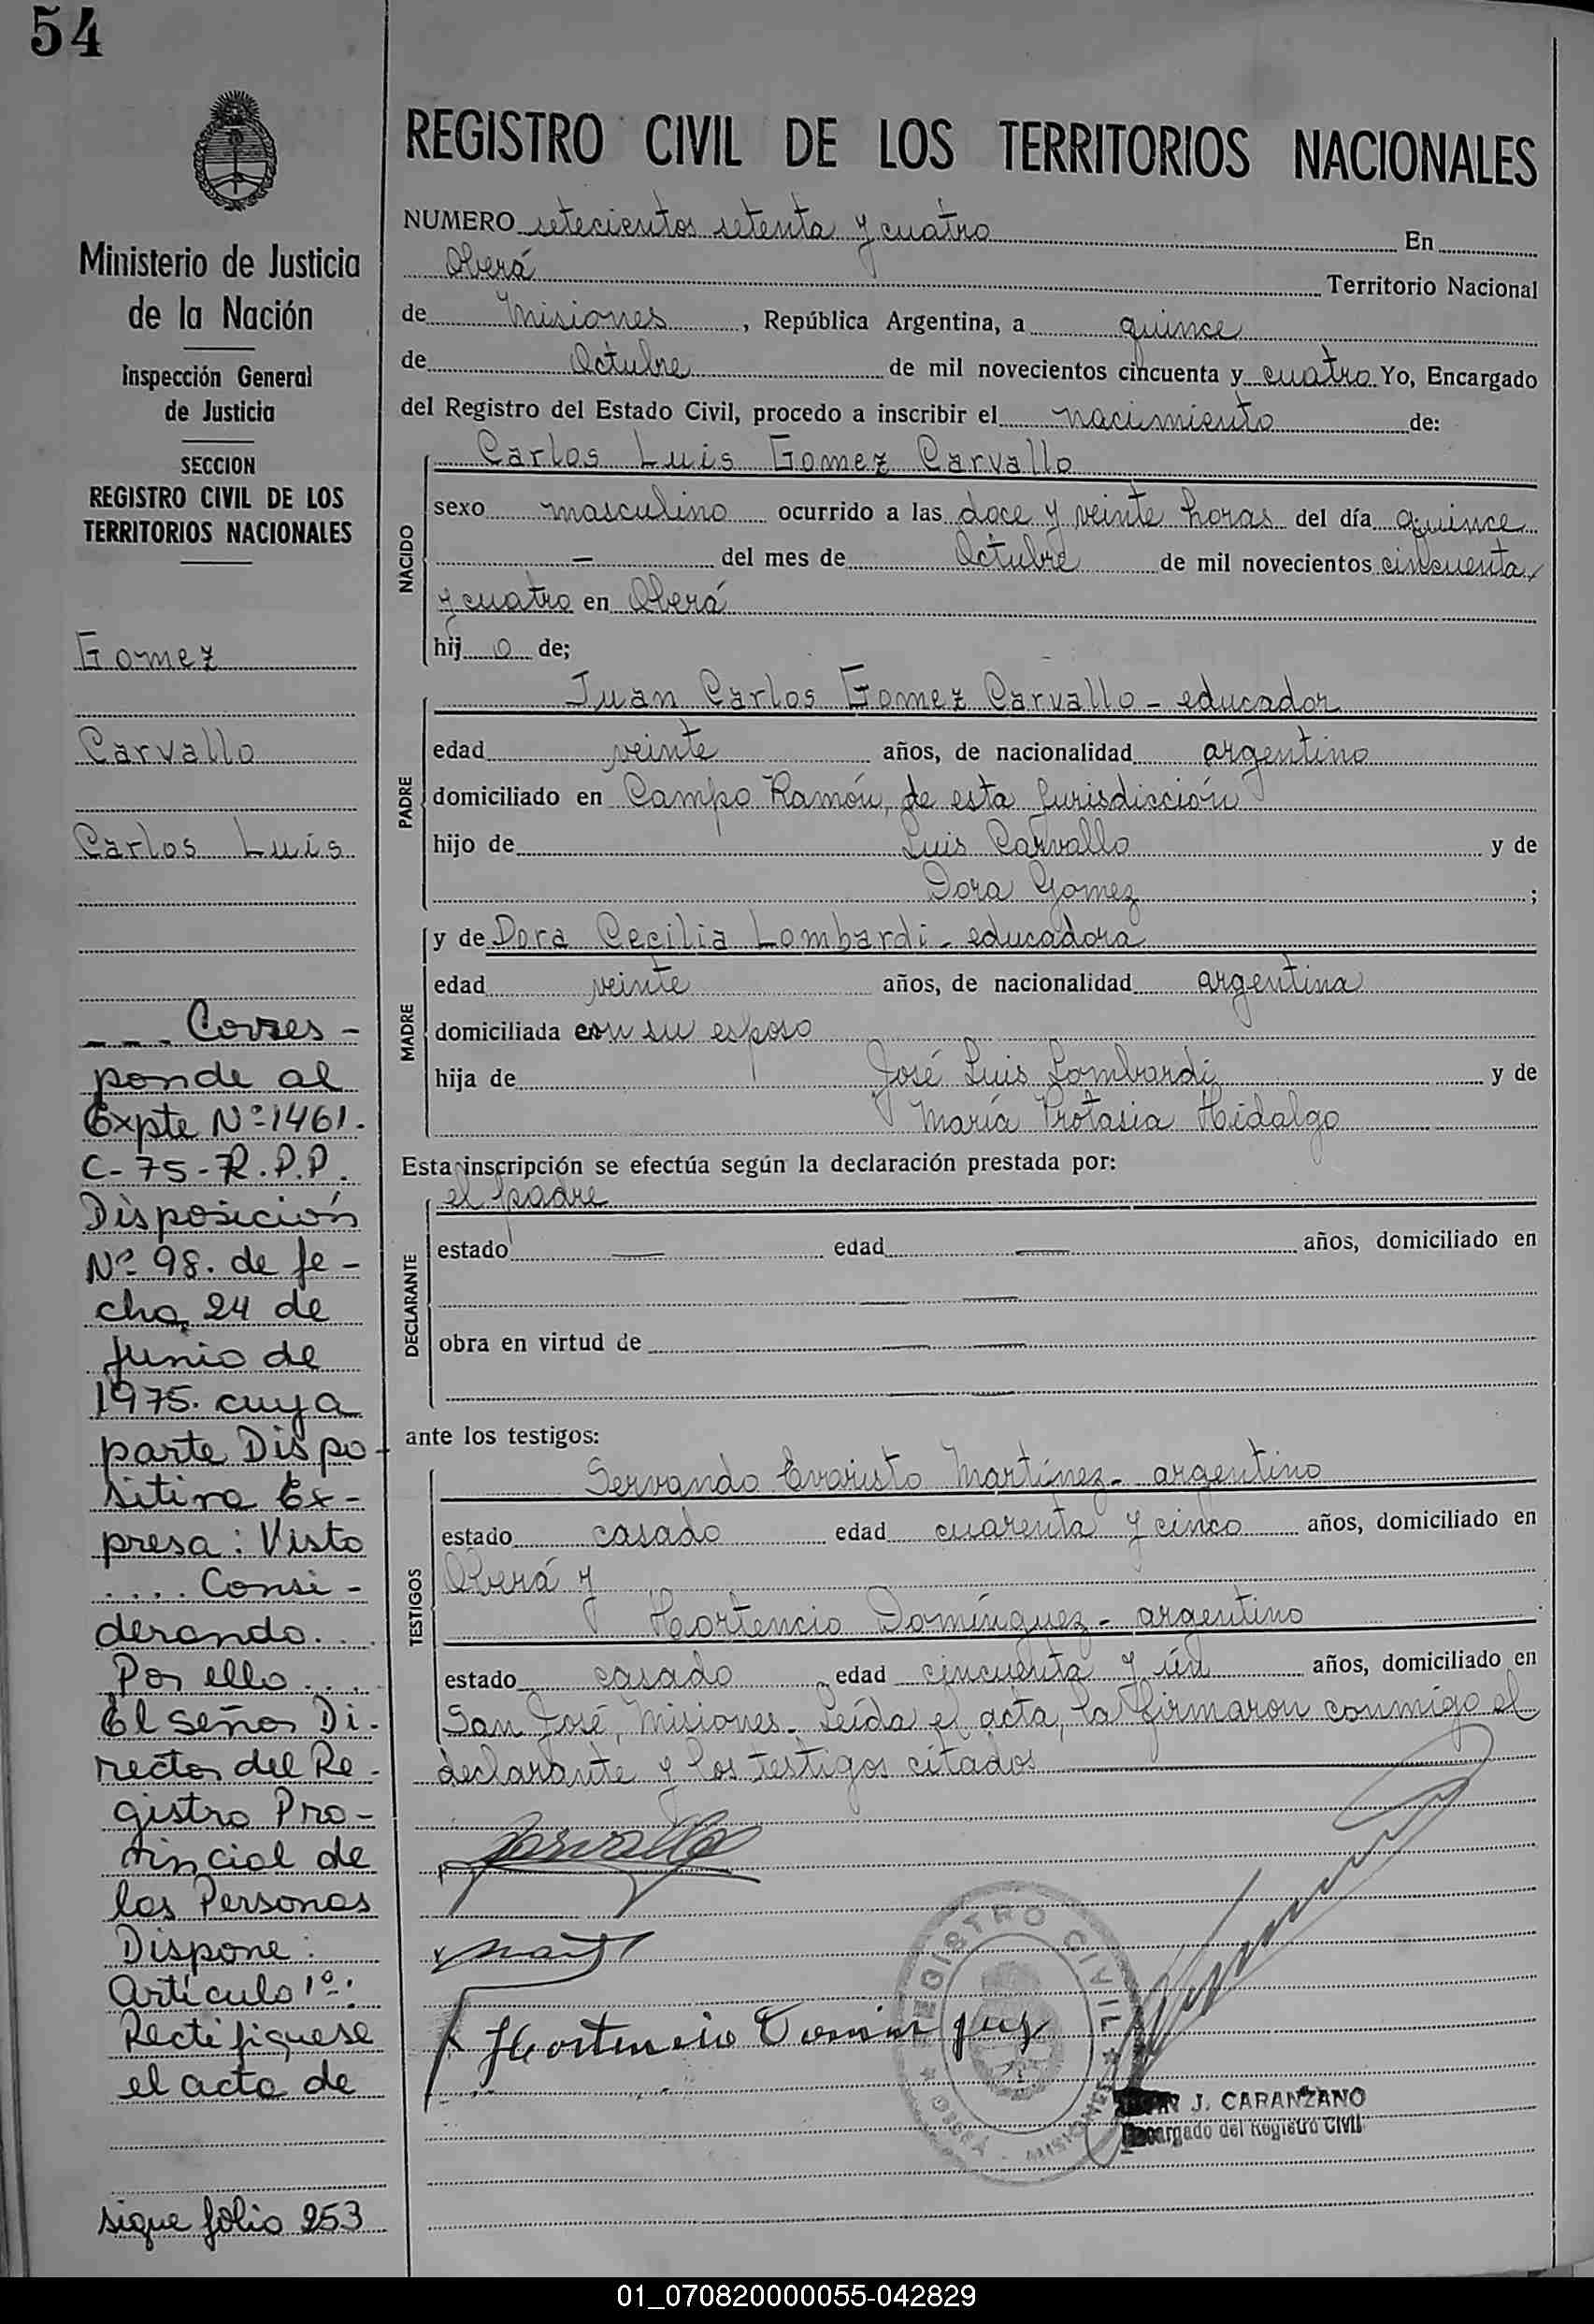 54
Ministerio de Justicia
de la Nación
Inspección General
de Justicia
SECCION
REGISTRO CIVIL DE LOS
TERRITORIOS NACIONALES
Gomez
Carvallo
Carlos Luis
___ Corres-
ponde al
Expte Nº 1461.
C-75-R.P.P.
Disposición
Nº 98. de fe-
cha 24 de
Junio de
1975. cuya
parte Dispo-
sitiva Ex-
presa: Visto
.... Consi-
derando...
Por ello....
El señor Di-
rector del Re-
gistro Pro-
vincial de
las Personas
Dispone:
Artículo 1º:
Rectifiquese
el acta de
sigue folio 253
REGISTRO CIVIL DE LOS TERRITORIOS NACIONALES
NUMERO setecientos setenta y cuatro En
Oberá Territorio Nacional
de Misiones, República Argentina, a quince
de Octubre de mil novecientos cincuenta y cuatro Yo, Encargado
del Registro del Estado Civil, procedo a inscribir el nacimiento de:
Carlos Luis Gomez Carvallo
NACIDO
sexo masculino ocurrido a las doce y veinte horas del día quince
— del mes de Octubre de mil novecientos cincuenta
y cuatro en Oberá
hijo de;
Juan Carlos Gomez Carvallo - educador
PADRE
edad veinte años, de nacionalidad argentino
domiciliado en Campo Ramón, de esta Jurisdicción
hijo de Luis Carvallo y de
Dora Gomez ;
y de Dora Cecilia Lombardi - educadora
MADRE
edad veinte años, de nacionalidad argentina
domiciliada con su esposo
hija de José Luis Lombardi y de
María Protasia Hidalgo
Esta inscripción se efectúa según la declaración prestada por:
el padre
DECLARANTE
estado — edad — años, domiciliado en
— —
obra en virtud de — —
— —
ante los testigos:
Servando Evaristo Martínez - argentino
TESTIGOS
estado casado edad cuarenta y cinco años, domiciliado en
Oberá y
Hortencio Domínguez - argentino
estado casado edad cincuenta y un años, domiciliado en
San José, Misiones. Leída el acta, la firmaron conmigo el
declarante y los testigos citados
Carvallo
Hortencio Dominguez
REGISTRO CIVIL
OBERA MISIONES
J. CARANZANO
Encargado del Registro Civil
01_070820000055-042829